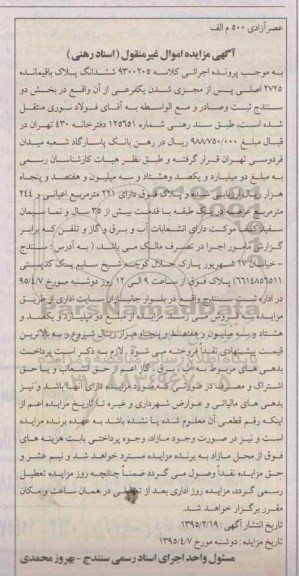 عصرآزادی ۵۰۰ م الف
آگهی مزایده اموال غیرمنقول (اسناد رهنی)
به موجب پرونده اجرائی کلاسه ۹۳۰۰۲۰۵ ششدانگ پلاک باقیمانده
۲۷۲۵ اصلی پس از مجزی شدن یکفرعی از آن واقع در بخش دو
سنندج ثبت وصادر و مع الواسطه به آقای فولاد نوری منتقل
شده است، طبق سند رهنی شماره ۱۲۵۶۵۱ دفترخانه ۴۳۰ تهران در
قبال مبلغ ۹۸۸/۷۵۰/۰۰۰ ریال در رهن بانک پاسارگاد شعبه میدان
فردوسی تهران قرار گرفته و طبق نظر هیات کارشناسان رسمی
به مبلغ دو میلیارد و یکصد وهشتاد و سه میلیون و هفتصد و پنجاه
هزار ریال ارزیابی شده و پلاک فوق دارای ۲۲۱ مترمربع اعیانی و ۲۴۴
مترمربع عرصه یک طبقه با قدمت بیش از ۳۵ سال و نما سیمان
سفید و موکت دارای انشعابات آب و برق و گاز و تلفن که برابر
گزارش مامور اجرا در تصرف مالک می باشد، (به آدرس: سنندج
- خیابان ۱۷ شهریور پارک جلال کوچه شخ سلیم پستی
۶۶۱۴۸۵۶۵۱۱) پلاک فوق از ساعت ۹ الی ۱۲ روز دوشنبه مورخ ۹۵/۴/۷
در اداره ثبت سنندج واقع در بلوار جانبازان سایت اداری از طریق
مزایده بفروش میرسد مزایده از مبلغ دو میلیارد و یکصد و
هشتاد و سه میلیون و هفتصد و پنجاه هزار ریال شروع و به بالاترین
قیمت پیشنهادی نقداً فروخته می شود. لازم به ذکر است پرداخت
بدهی های مربوط به آب، برق، گاز اعم از حق انشعاب و یا حق
اشتراک و مصرف در صورتی که مورد مزایده دارای آنها باشد و نیز
بدهی های مالیاتی و عوارض شهرداری و غیره تا تاریخ مزایده اعم از
اینکه رقم قطعی آن معلوم شده یا نشده باشد به عهده برنده مزایده
است و نیز در صورت وجود مازاد، وجوه پرداختی بابت هزینه های
فوق از محل مازاد به برنده مزایده مسترد خواهد شد و نیم عشر و
حق مزایده نقداً وصول می گردد ضمناً چنانچه روز مزایده تعطیل
رسمی گردد، مزایده روز اداری بعد از تعطیلی در همان ساعت و مکان
مقرر برگزار خواهد شد.
تاریخ انتشار آگهی: ۱۳۹۵/۲/۱۹
تاریخ مزایده: دوشنبه مورخ ۱۳۹۵/۴/۷
مسئول واحد اجرای اسناد رسمی سنندج - بهروز محمدی